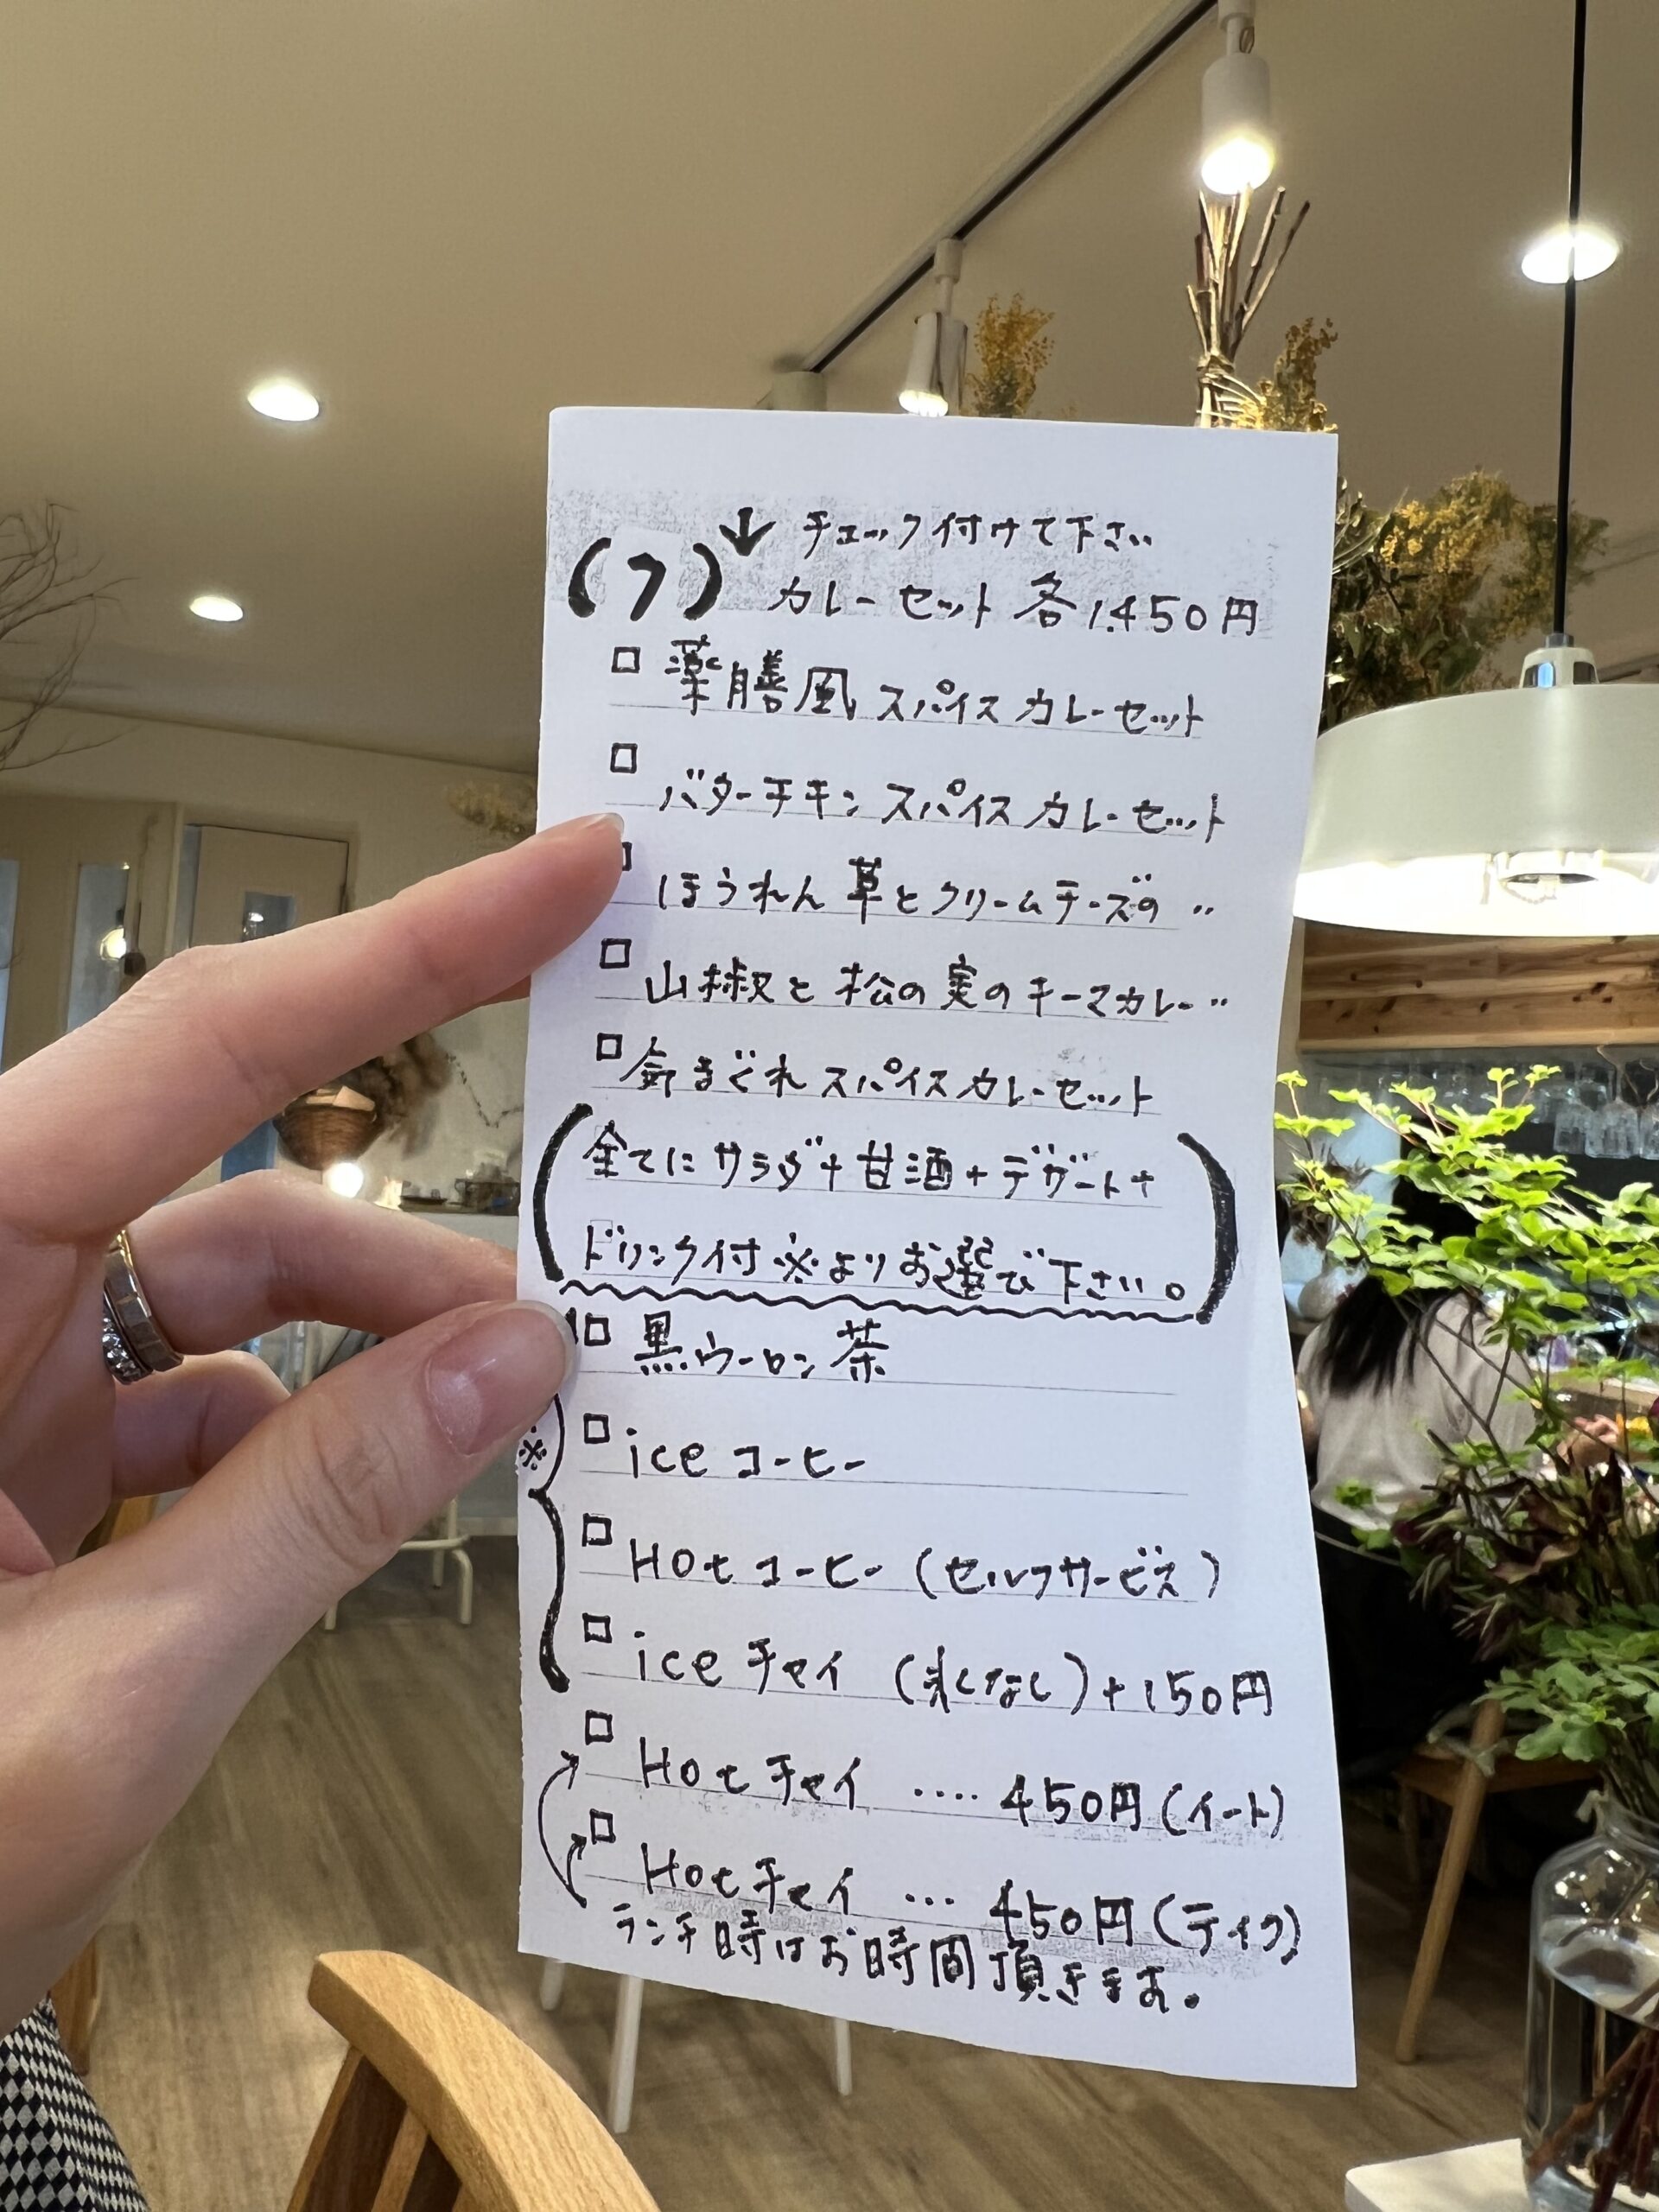 ↓ チェック付けて下さい
(7) カレーセット 各1,450円
□ 薬膳風 スパイスカレーセット
□ バターチキン スパイスカレーセット
□ ほうれん草とクリームチーズの 〃
□ 山椒と松の実のキーマカレー 〃
□ 気まぐれスパイスカレーセット
(全てにサラダ+甘酒+デザート+
ドリンク付※よりお選び下さい。)
□ 黒ウーロン茶
※
□ ice コーヒー
□ Hot コーヒー (セルフサービス)
□ ice チャイ (氷なし)+150円
□ Hot チャイ .... 450円(イート)
□ Hot チャイ ... 450円(テイク)
ランチ時はお時間頂きます。